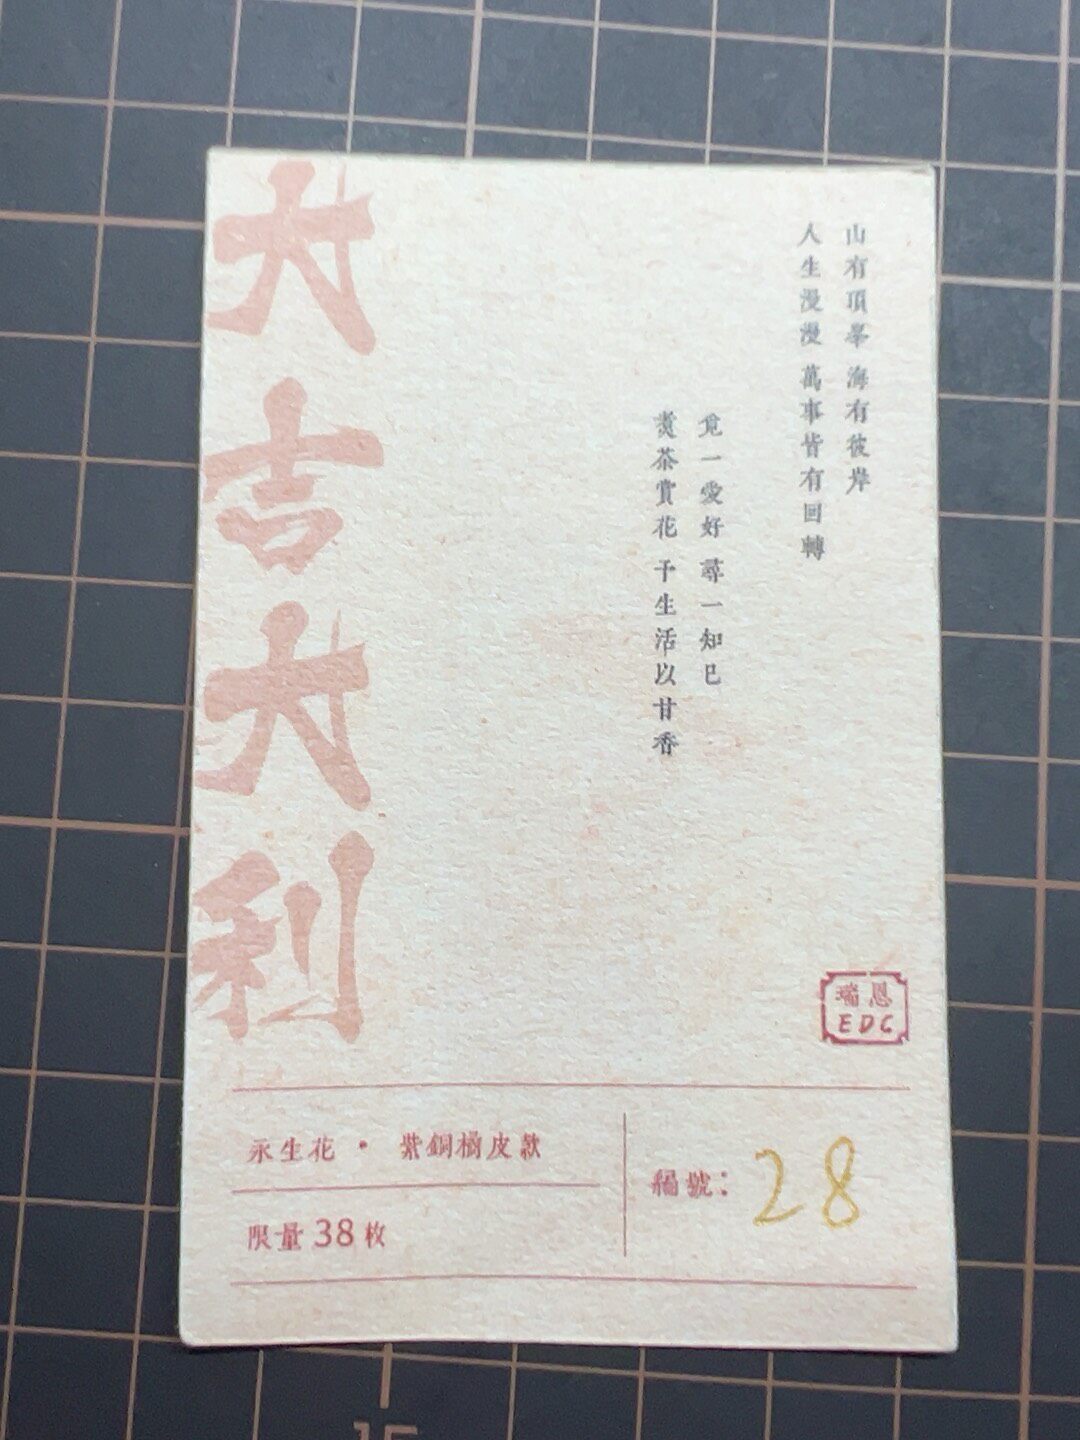 山有頂峯 海有彼岸
人生漫漫 萬事皆有回轉
覓一愛好 尋一知已
煑茶賞花 予生活以甘香
大吉大利
瑞恩
EDC
永生花・ 紫銅橘皮款
限量38枚
編號：28
15